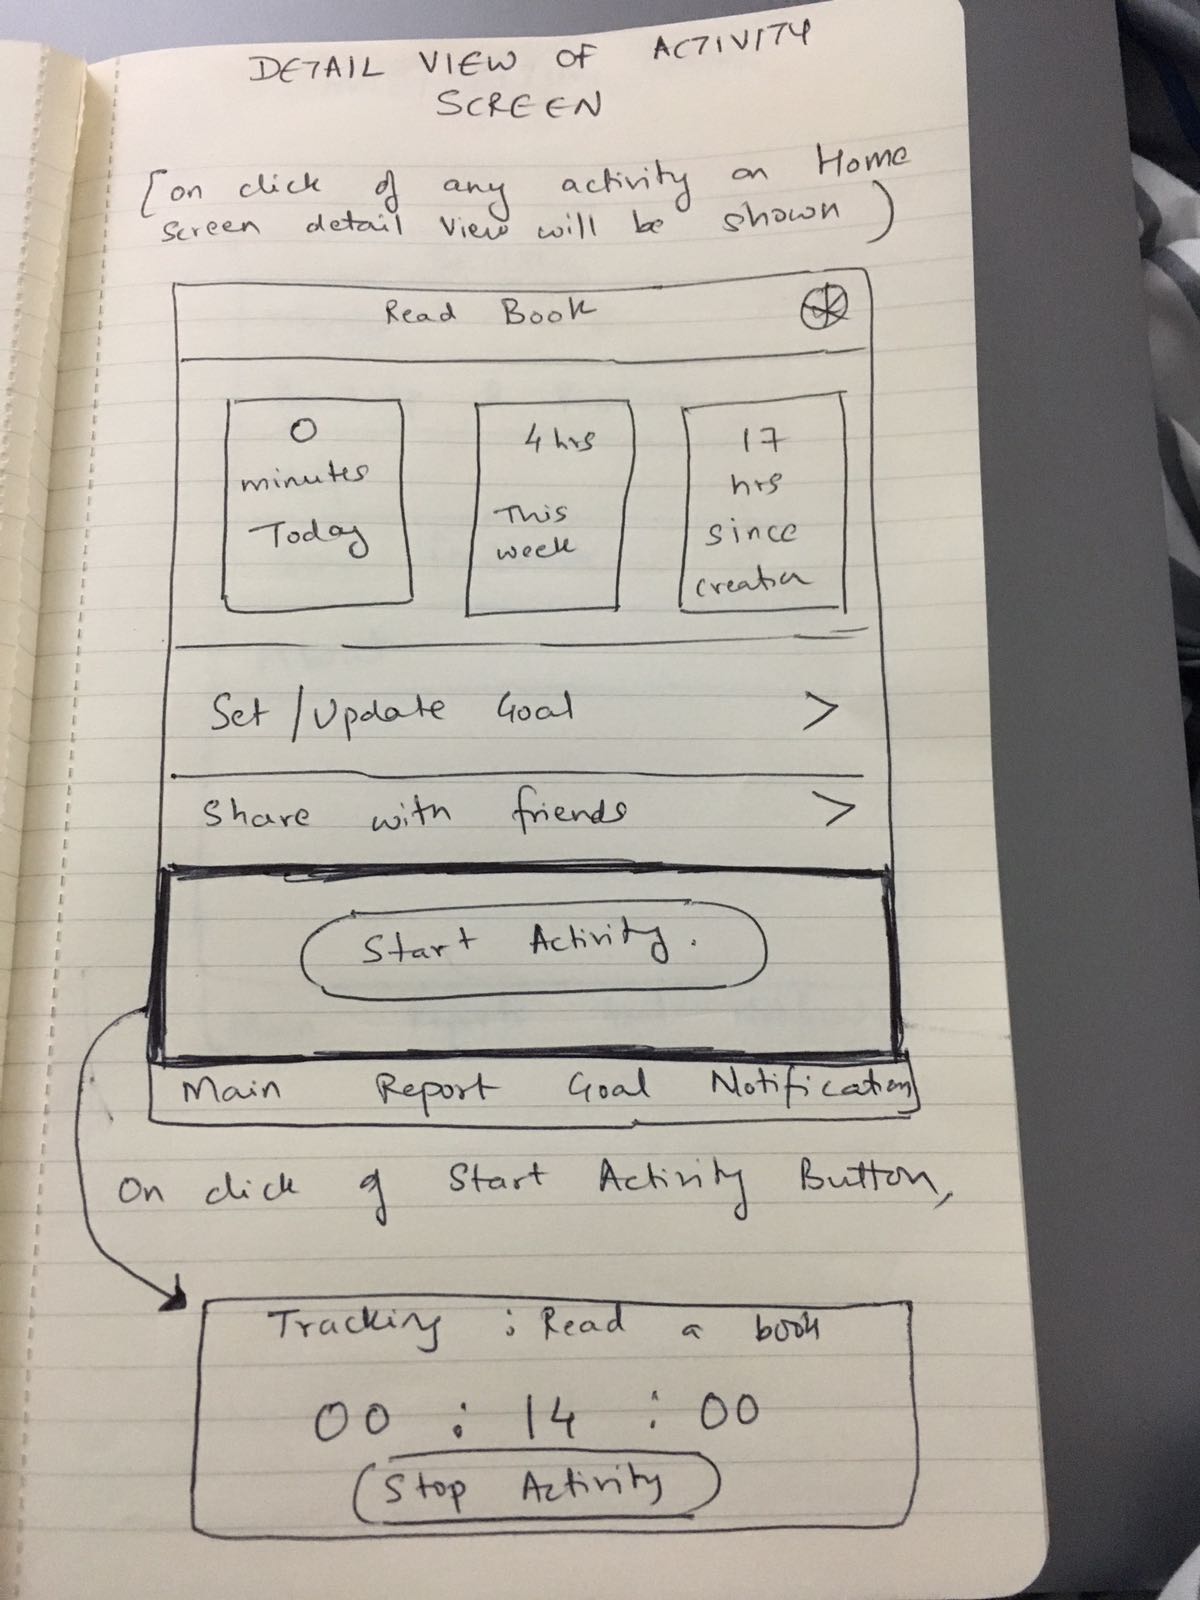 DETAIL VIEW OF ACTIVITY
SCREEN
[on click of any activity on Home
screen detail view will be shown)
Read Book
0
minutes
Today
4 hrs
This
week
17
hrs
since
creation
Set/Update Goal >
Share with friends >
Start Activity.
Main Report Goal Notification
On click of Start Activity Button,
Tracking : Read a book
00 : 14 : 00
Stop Activity